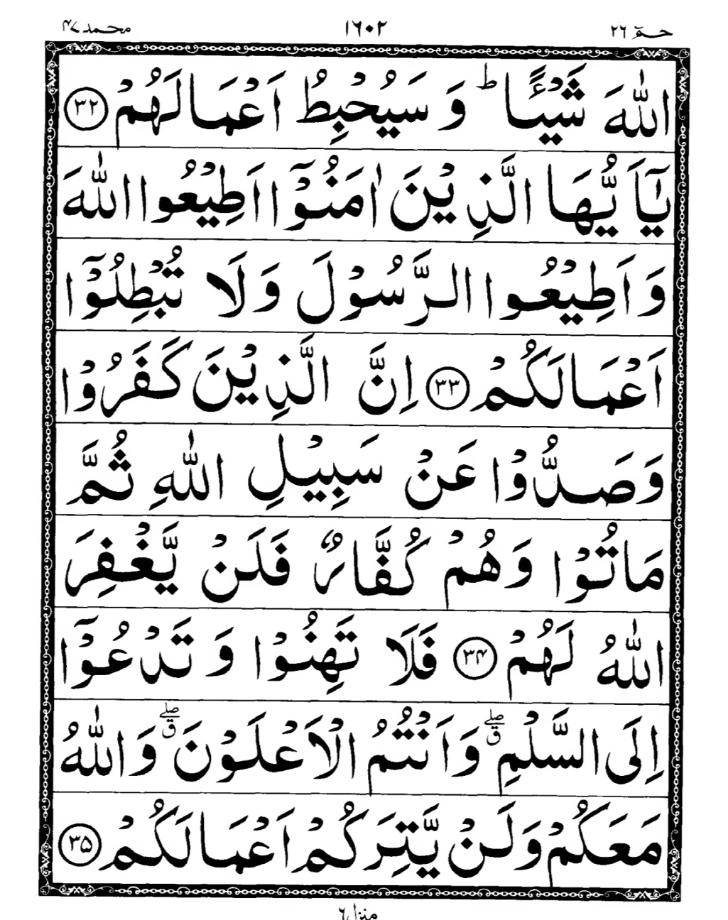 حٰمٓ ٢٦ ١٦٠٢ محمد ٤٧
اللّٰهَ شَيْـًٔا ؕ وَ سَيُحْبِطُ اَعْمَالَهُمْ ۝۳۲
يٰۤاَيُّهَا الَّذِيْنَ اٰمَنُوْۤا اَطِيْعُوا اللّٰهَ
وَ اَطِيْعُوا الرَّسُوْلَ وَ لَا تُبْطِلُوْۤا
اَعْمَالَكُمْ ۝۳۳ اِنَّ الَّذِيْنَ كَفَرُوْا
وَ صَدُّوْا عَنْ سَبِيْلِ اللّٰهِ ثُمَّ
مَاتُوْا وَ هُمْ كُفَّارٌ فَلَنْ يَّغْفِرَ
اللّٰهُ لَهُمْ ۝۳۴ فَلَا تَهِنُوْا وَ تَدْعُوْۤا
اِلَى السَّلْمِ ۖۗ وَ اَنْتُمُ الْاَعْلَوْنَ ۖۗ وَ اللّٰهُ
مَعَكُمْ وَ لَنْ يَّتِرَكُمْ اَعْمَالَكُمْ ۝۳۵
منزل ٦